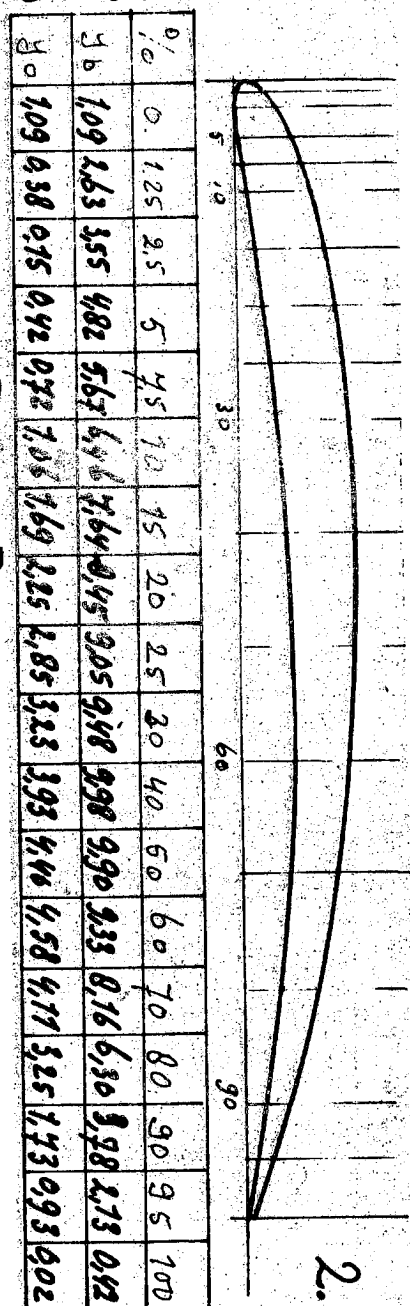 2.
5 10 30 60 90
% 0. 1.25 2,5 5 7,5 10 15 20 25 30 40 50 60 70 80 90 95 100
yb 1,09 2,63 3,55 4,82 5,67 6,46 7,64 8,45 9,05 9,48 9,98 9,90 9,33 8,16 6,30 3,78 2,13 0,42
yo 1,09 0,38 0,15 0,42 0,72 1,06 1,69 2,25 2,85 3,23 3,93 4,46 4,58 4,11 3,25 1,73 0,93 0,02